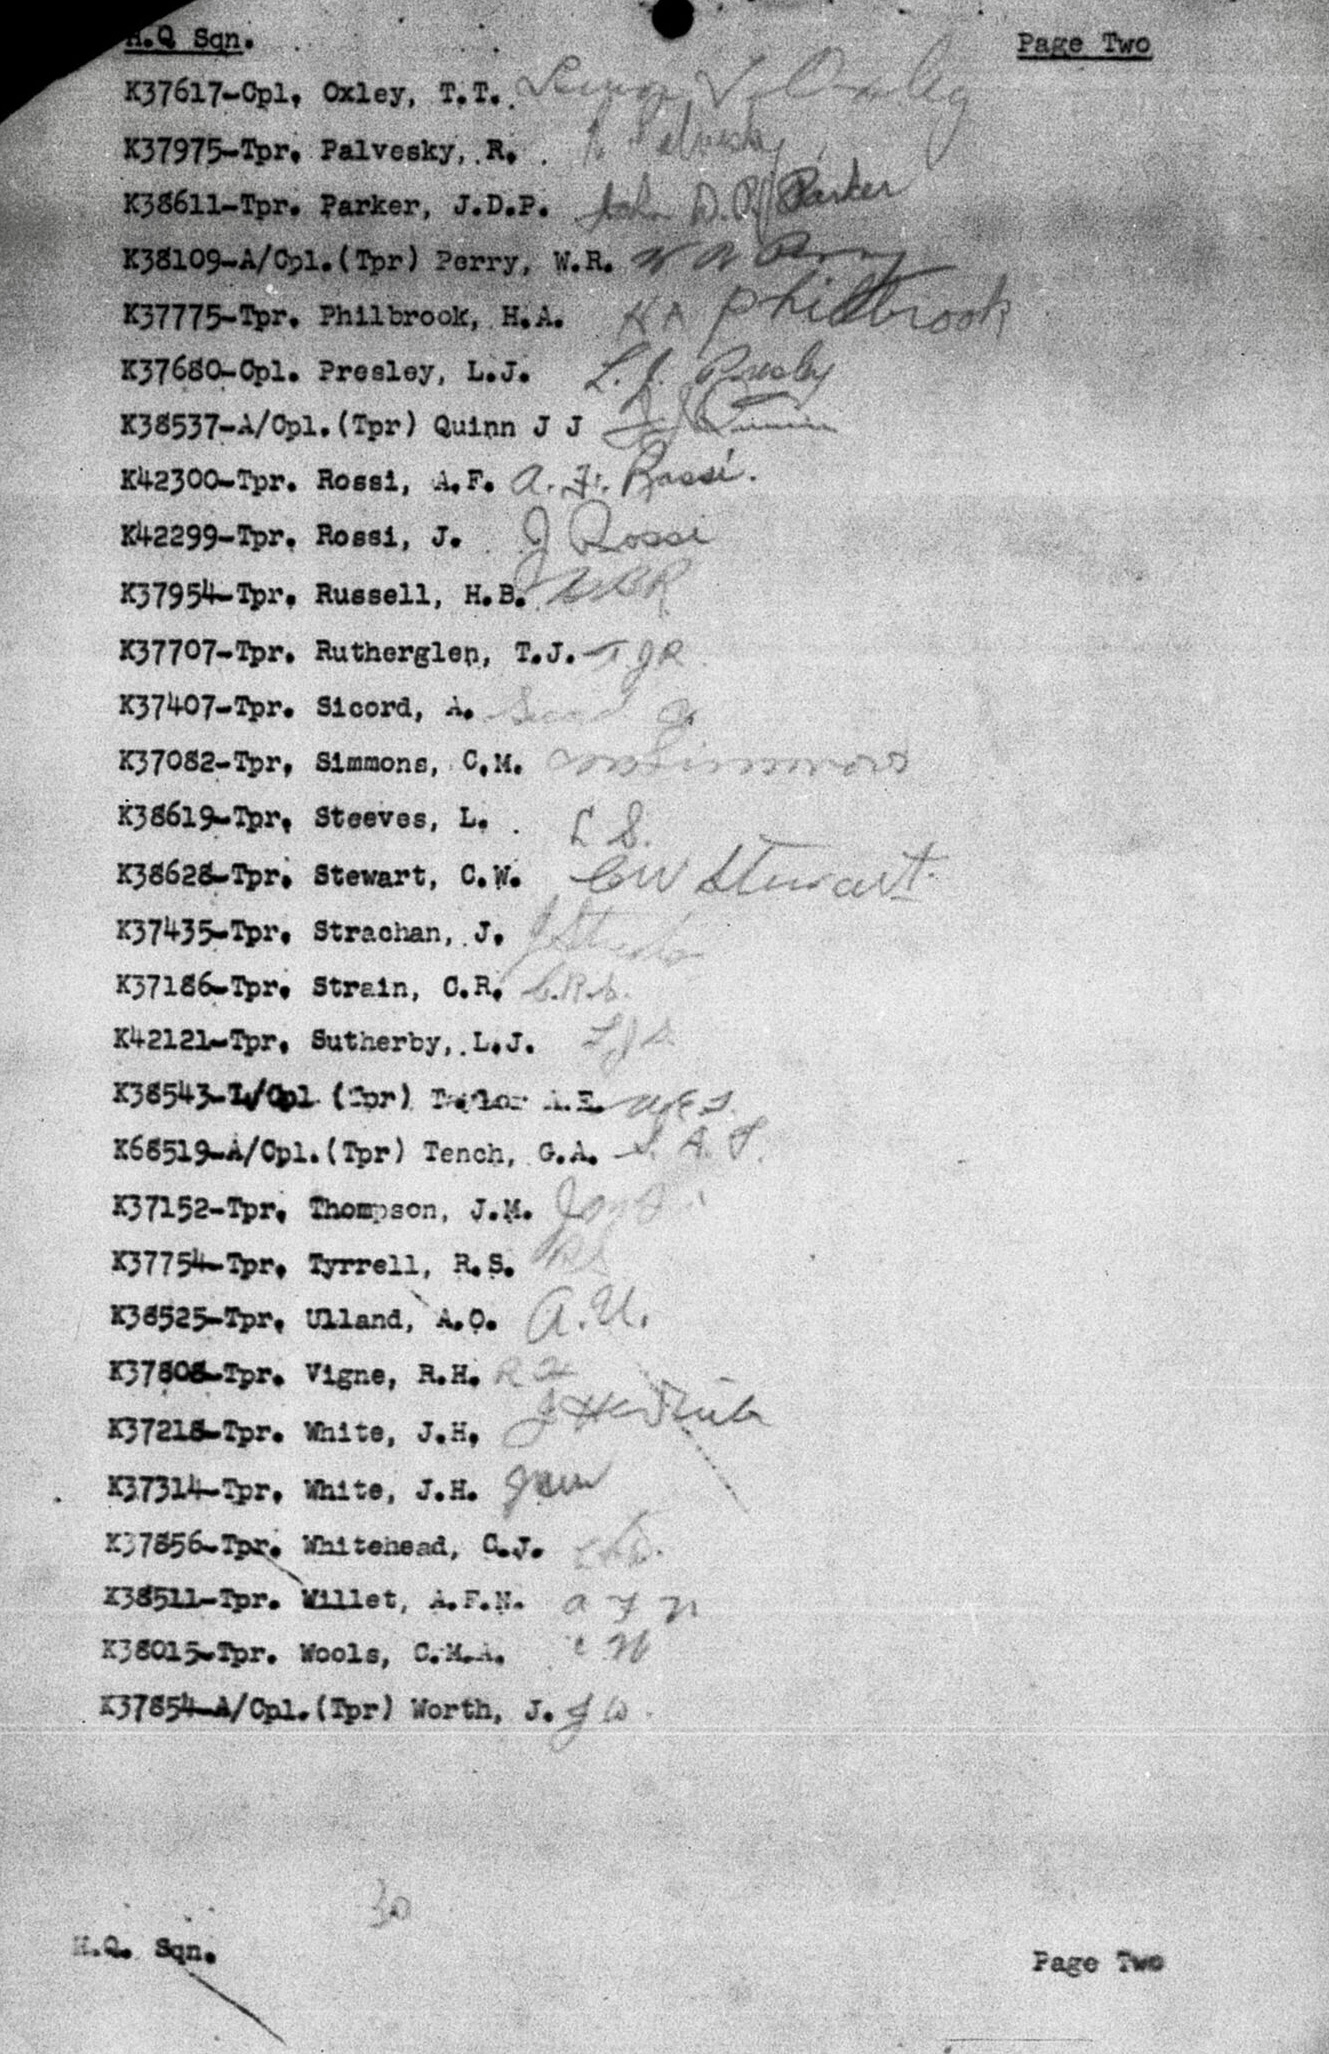 H.Q Sqn. Page Two
K37617-Cpl. Oxley, T.T. Oxley
K37975-Tpr. Palvesky, R. R Palvesky
K38611-Tpr. Parker, J.D.P. John D.P. Parker
K38109-A/Cpl.(Tpr) Perry, W.R. W R Perry
K37775-Tpr. Philbrook, H.A. H A Philbrook
K37680-Cpl. Presley, L.J. L. J. Presley
K38537-A/Cpl.(Tpr) Quinn J J J J Quinn
K42300-Tpr. Rossi, A.F. A. F. Rossi.
K42299-Tpr. Rossi, J. J Rossi
K37954-Tpr. Russell, H.B. HBR
K37707-Tpr. Rutherglen, T.J. T J R
K37407-Tpr. Sicord, A. A.
K37082-Tpr. Simmons, C.M. CM Simmons
K38619-Tpr. Steeves, L. L S.
K38628-Tpr. Stewart, C.W. CW Stewart.
K37435-Tpr. Strachan, J. J
K37186-Tpr. Strain, C.R. C.R.S.
K42121-Tpr. Sutherby, L.J. L J S
K38543-L/Cpl (Tpr) Taylor A.E. A.E.T.
K68519-A/Cpl.(Tpr) Tench, G.A. G. A. T.
K37152-Tpr. Thompson, J.M.
K37754-Tpr. Tyrrell, R.S. RS
K38525-Tpr. Ulland, A.O. A.U.
K37808-Tpr. Vigne, R.H. R H
K37218-Tpr. White, J.H. J H White
K37314-Tpr. White, J.H. JHW
K37856-Tpr. Whitehead, C.J.
K38511-Tpr. Willet, A.F.N. a F n
K38015-Tpr. Wools, C.M.A. C W
K37854-A/Cpl.(Tpr) Worth, J. J W.
30
H.Q. Sqn. Page Two